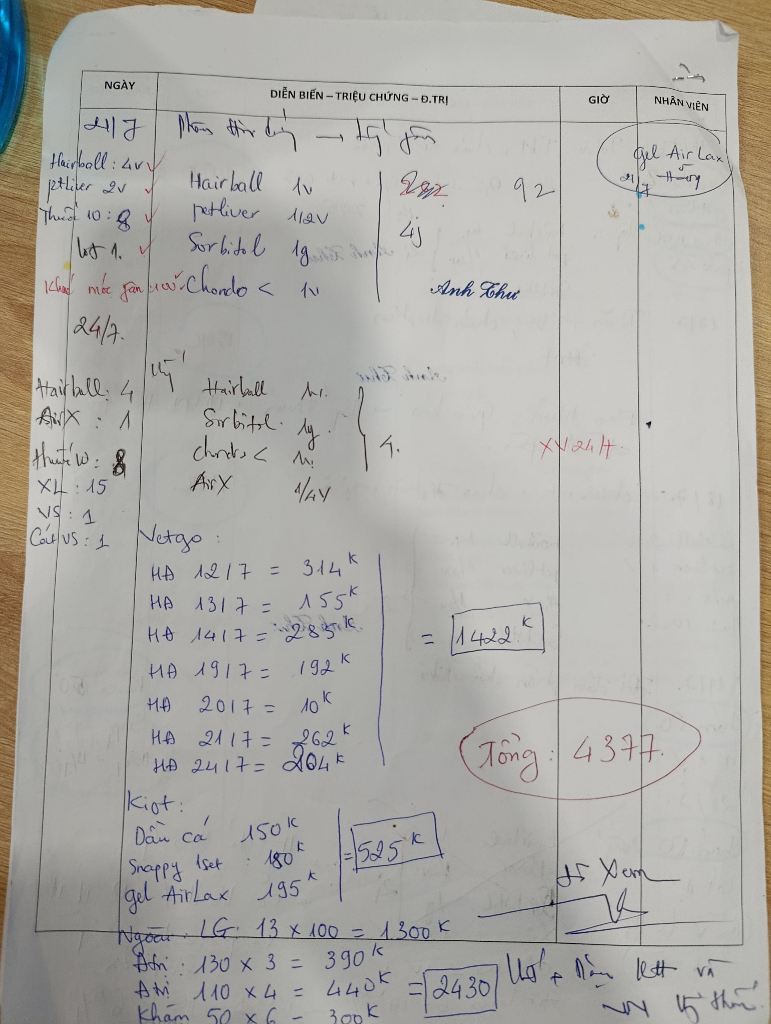 NGÀY DIỄN BIẾN – TRIỆU CHỨNG – Đ.TRỊ GIỜ NHÂN VIÊN
21/7
gel AirLax
21/7
Hairball: 4v
petliver 2v
Thuốc 10: 8
lọt 1.
100
Hairball 1v
petliver 1/2v
Sorbitol 1g
Chondo < 1v
92
4j
Anh Thư
24/7.
Hairball: 4
AirX : 1
thuốc 10: 8
XL : 15
VS : 1
Cát VS : 1
Hairball 1v.
Sorbitol. 1g.
Chondo < 1v.
AirX 1/4V
4.
XV 24H
Vetgo :
HĐ 12/7 = 314K
HĐ 13/7 = 155K
HĐ 14/7 = 285K
HĐ 19/7 = 192K
HĐ 20/7 = 10K
HĐ 21/7 = 262K
HĐ 24/7 = 204K
= 1422K
Tổng: 4377.
Kiot:
Dầu cá 150K
Snappy 1set : 180K
gel AirLax 195K
= 525K
Ngoài: LG: 13 x 100 = 1300K
130 x 3 = 390K
110 x 4 = 440K
Khám 50 x 6 = 300K
= 2430